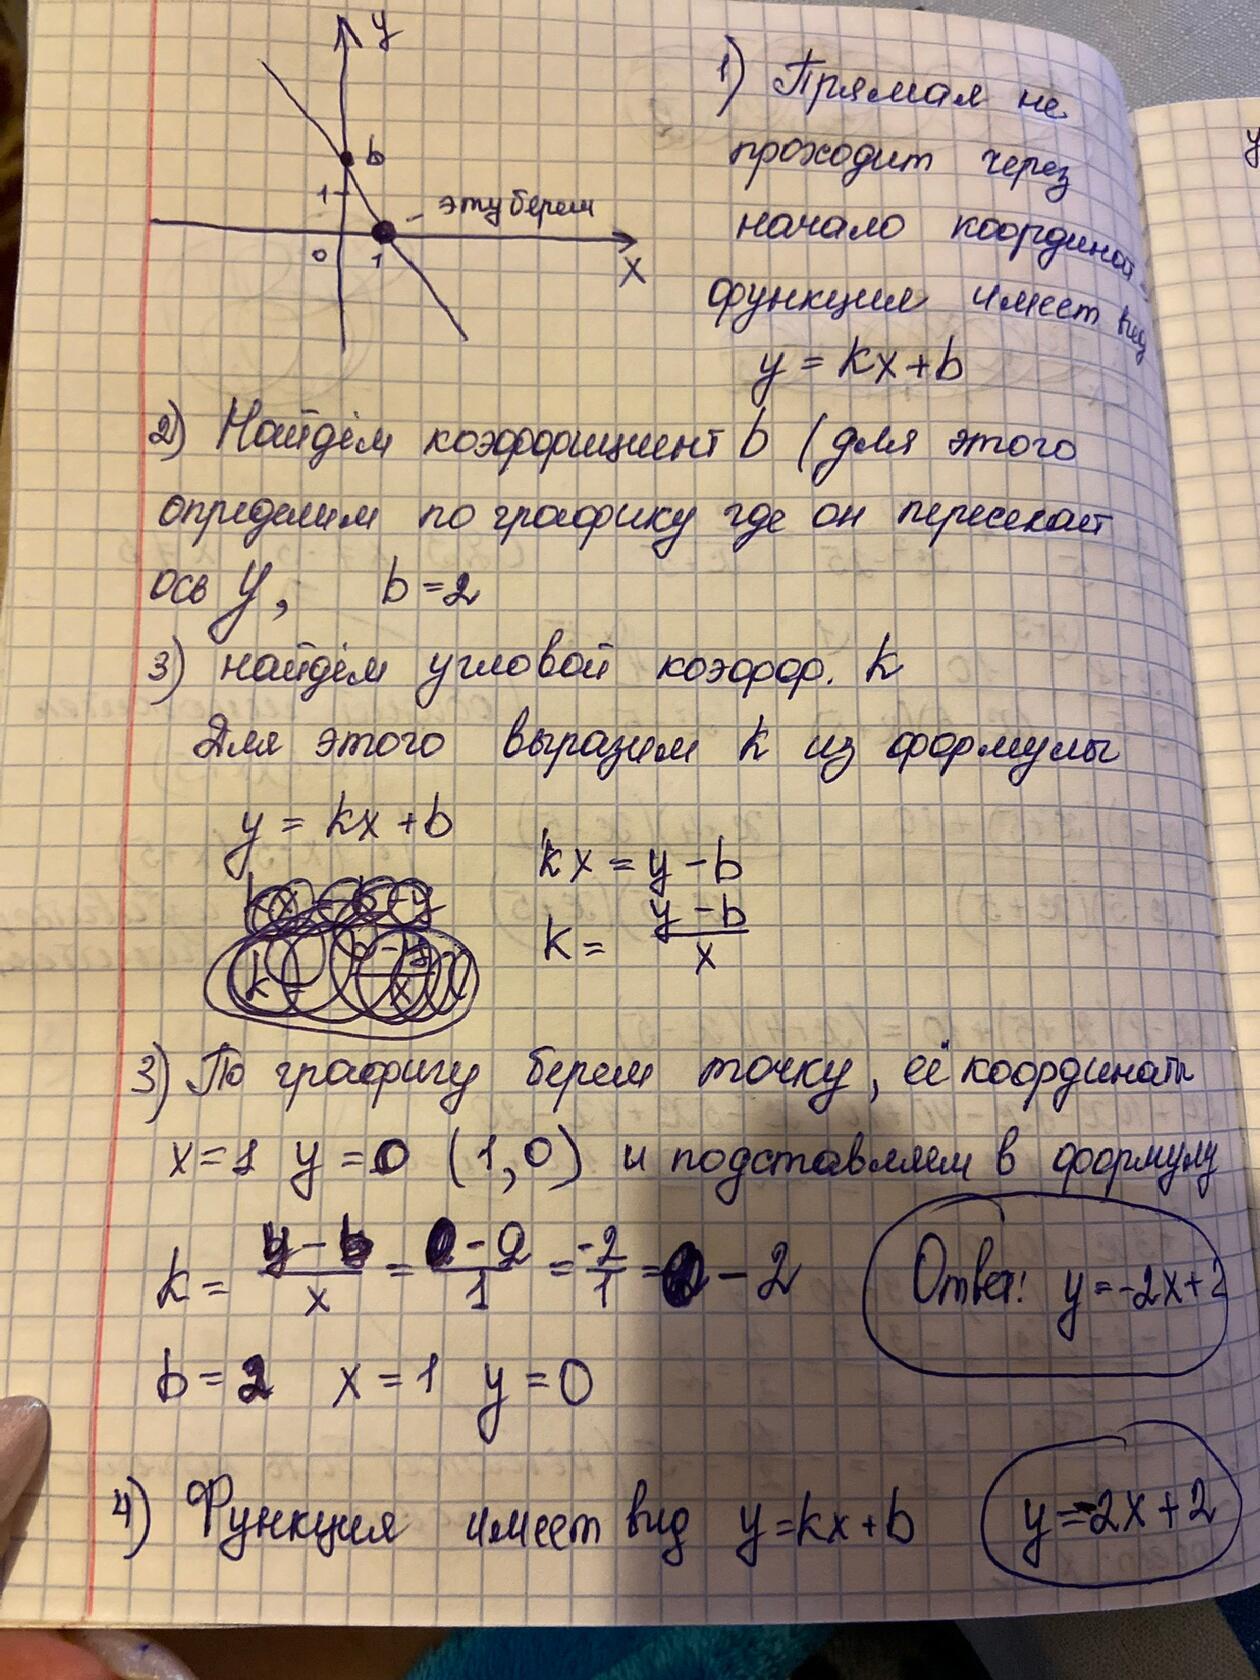 y
b
1
эту берем
0
1
x
1) Прямая не
проходит через
начало координат
функция имеет вид
y = kx + b
2) Найдём коэффициент b (для этого
определим по графику где он пересекает
ось y, b = 2
3) найдём угловой коэфф. k
Для этого выразим k из формулы
y = kx + b
kx = y - b
k = (y - b)/x
3) По графигу берем точку, её координаты
x = 1 y = 0 (1,0) и подставляем в формулу
k = (y - b)/x = (0 - 2)/1 = -2/1 = -2
Ответ: y = -2x + 2
b = 2 x = 1 y = 0
4) Функция имеет вид y = kx + b
y = -2x + 2